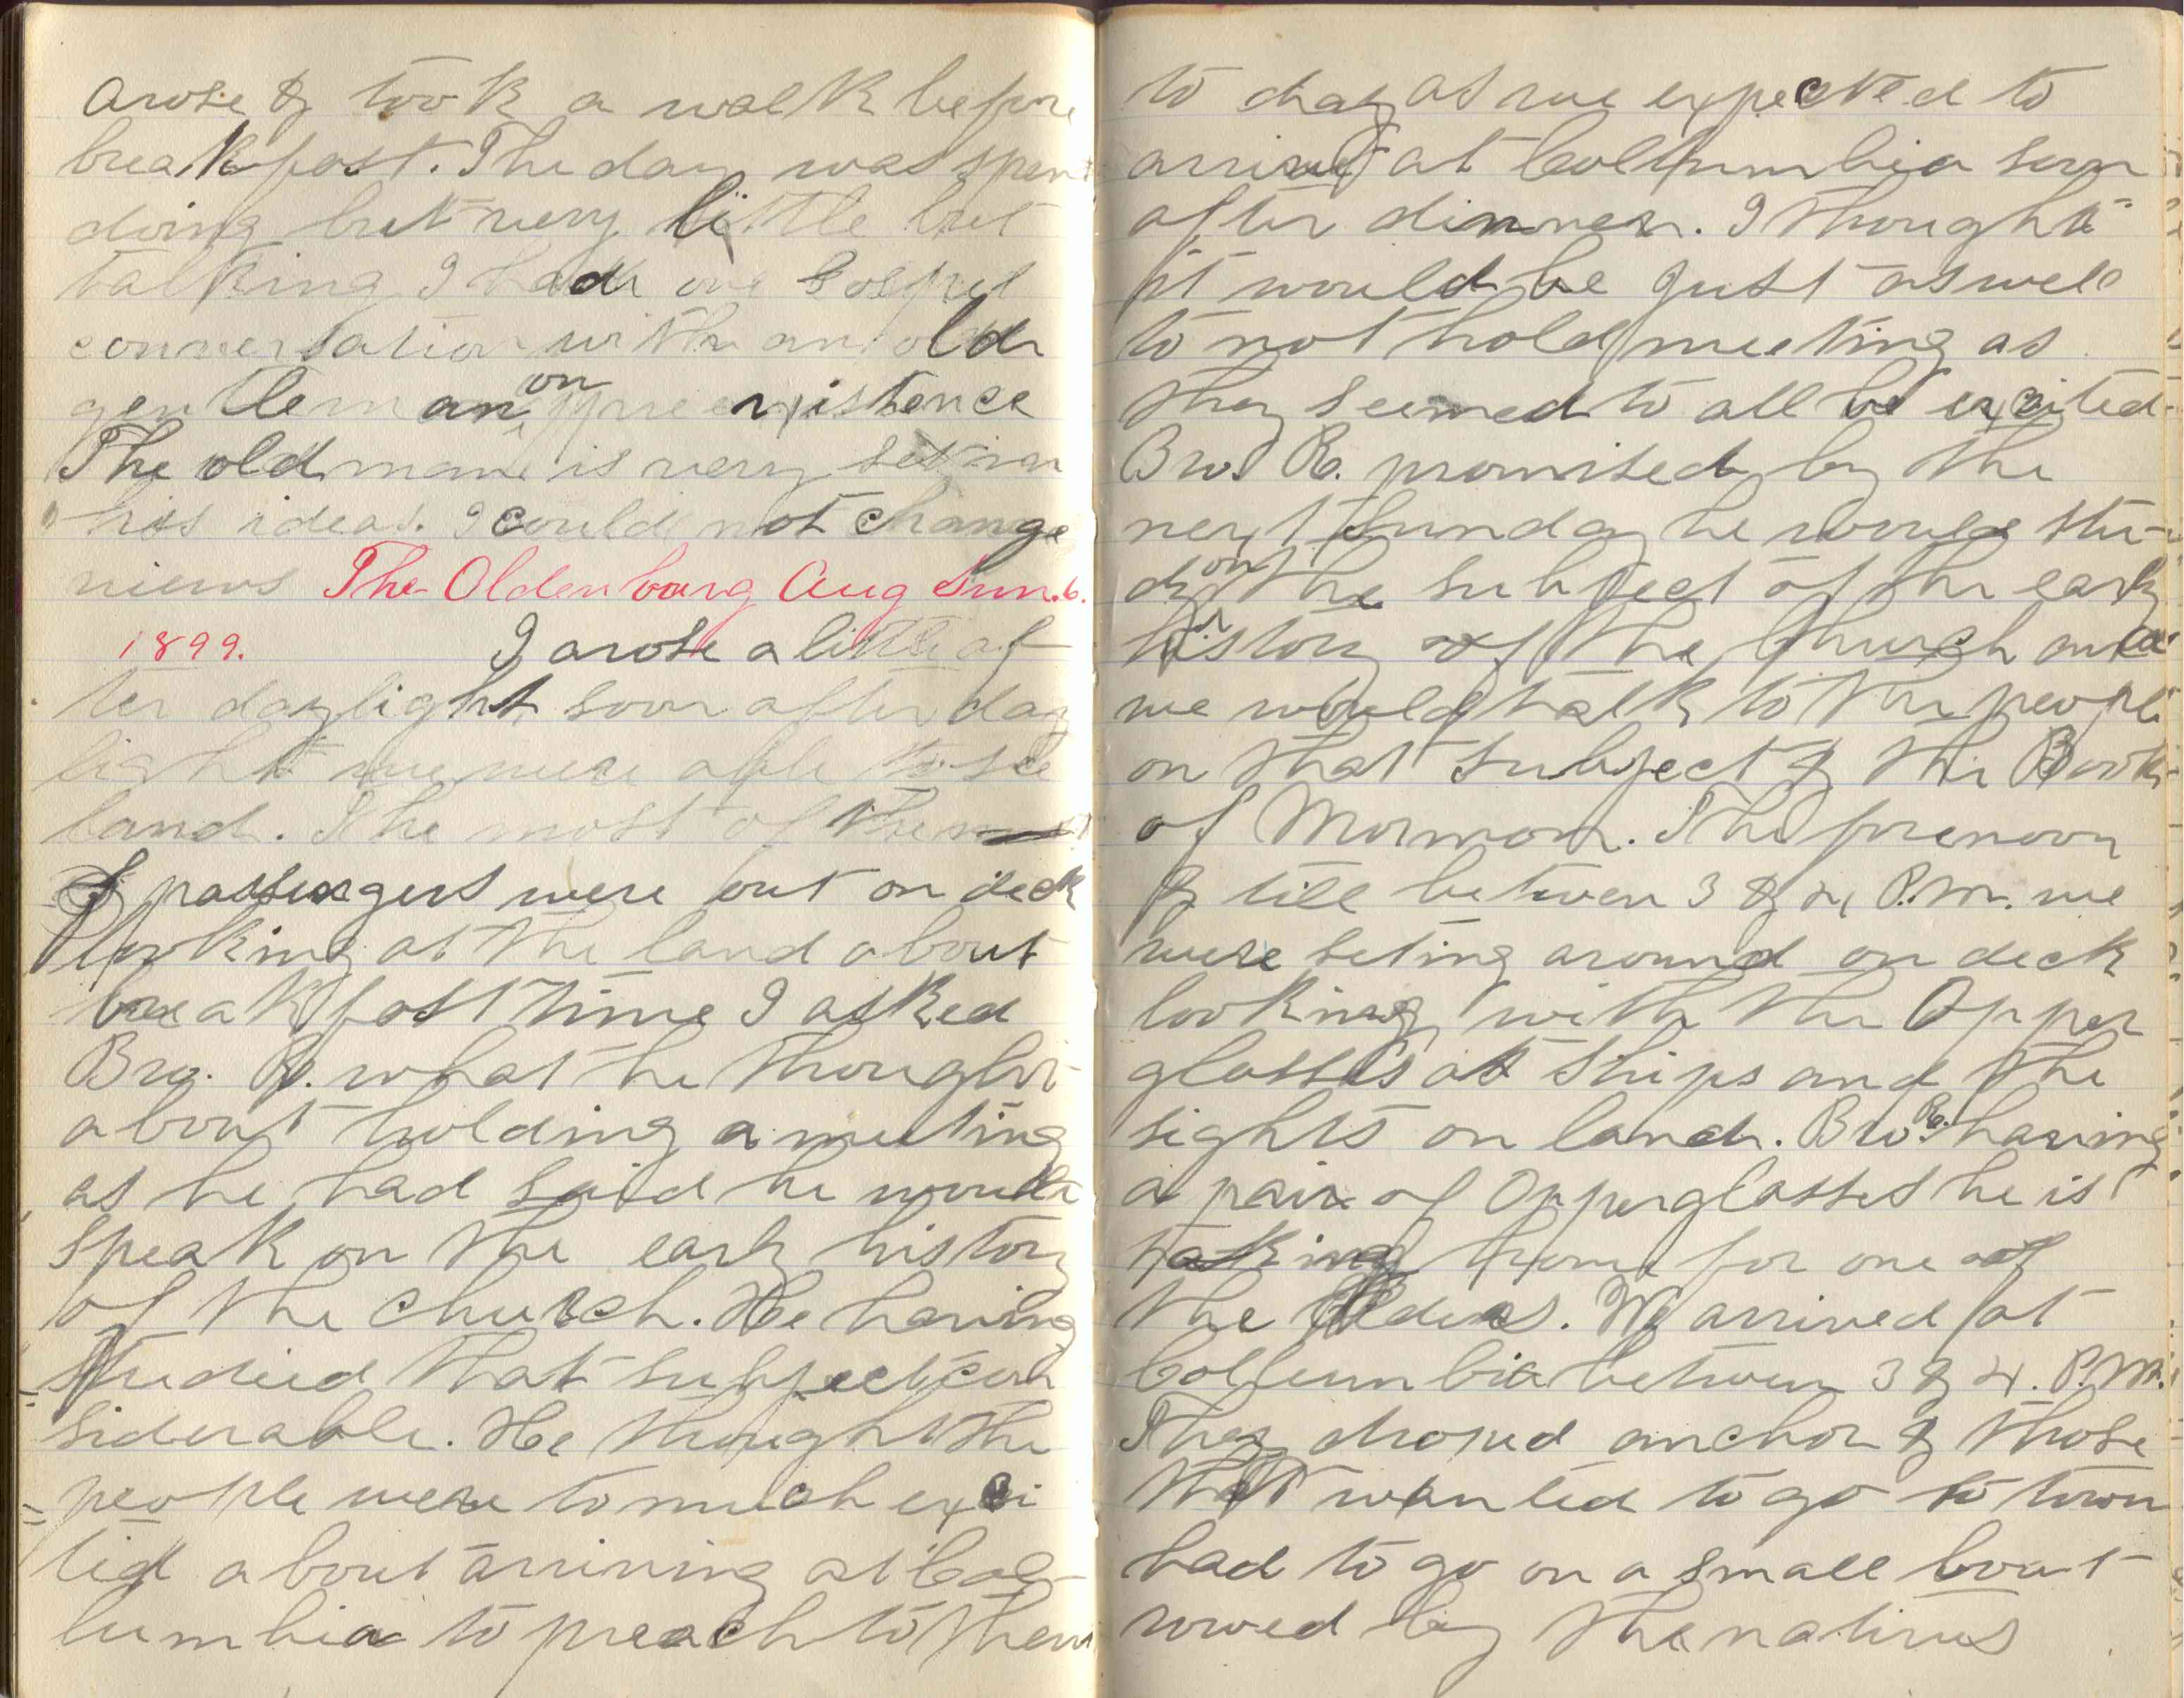 arose & took a walk before
breakfast. The day was spent
doing but very little but
talking I had one Gospel
conversation with an old
gentleman on preexistence
The old man is very set in
his ideas. I could not change
views The Oldenburg Aug Sun. 6.
1899. I arose a little af-
ter daylight soon after day
light we were able to see
land. The most of the
passengers were out on deck
looking at the land about
breakfast time I asked
Bro. R. what he thought
about holding a meeting
as he had said he would
speak on the early history
of the church. He having
studied that subject con
siderable. He thought the
people were to much exci
ted about arriving at Col-
lumbia to preach to them
to day as we expected to
arrive at Collumbia soon
after dinner. I thought
it would be just as well
to not hold meeting as
they seemed to all be excited
Bro. R. promised by the
next Sunday he would stu-
dy on the subject of the early
history of the Church and
we would talk to the people
on that subject & the Book
of Mormon. The forenoon
& till between 3 & 4 P.M. we
were seting around on deck
looking with the Opper
glasses at ships and the
sights on land. Bro. R. having
a pair of Opperglasses he is
taking home for one of
the Elders. We arrived at
Collumbia between 3 & 4. P.M.
They droped anchor & those
that wanted to go to town
had to go on a small boat
rowed by the natives